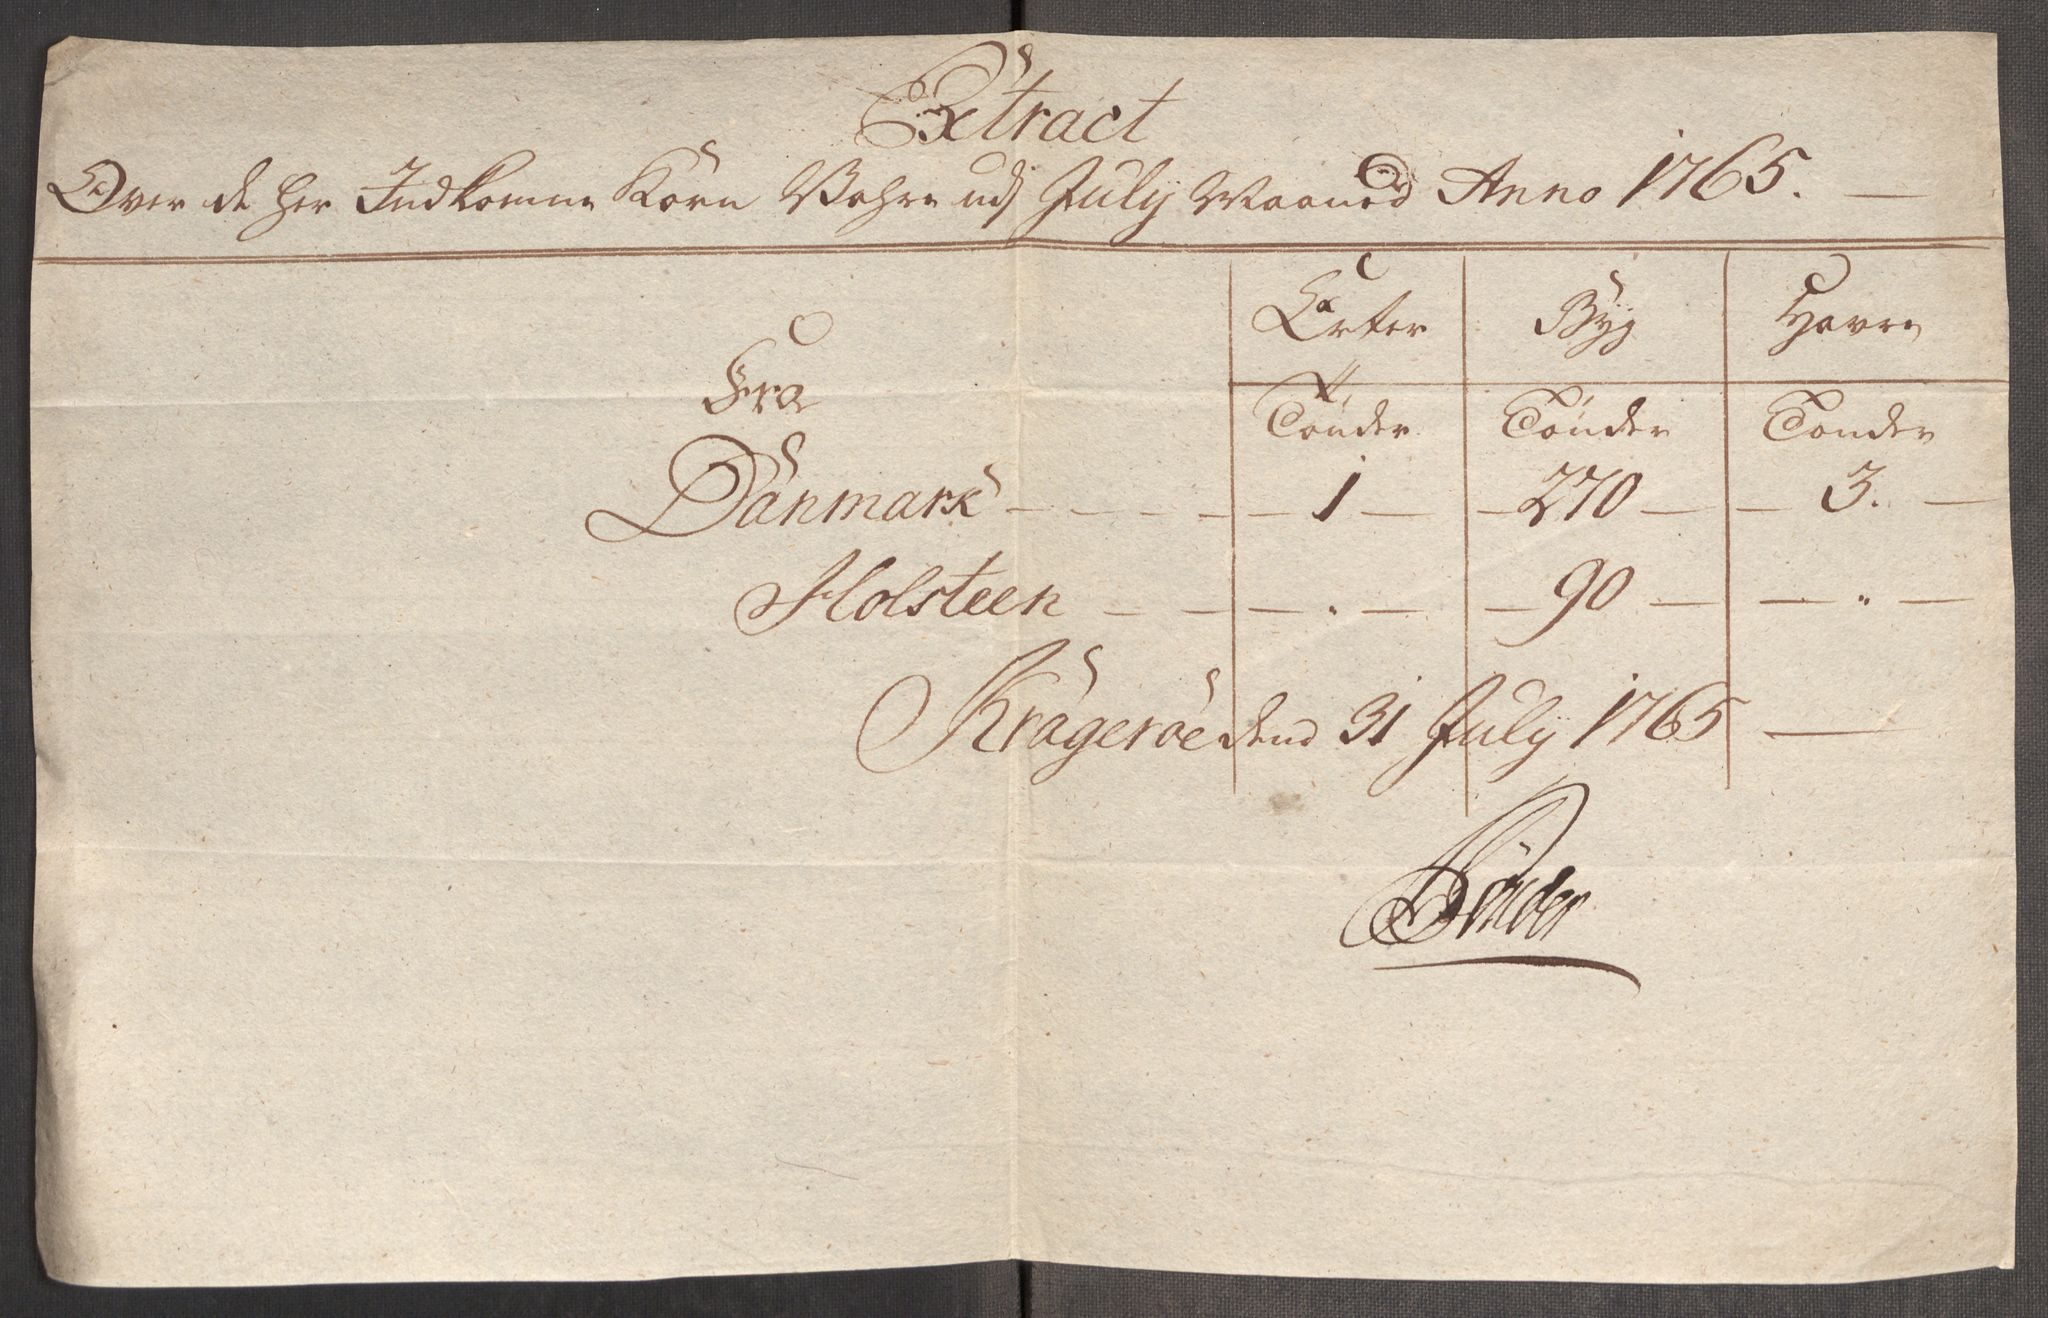 Extract
Over de her Indkomne Korn Vahre udj July Maaned Anno 1765. —
Erter Byg Havre
Fra
Tönder Tönder Tönder
Danmark - - - - 1 — 270 — 3. —
Holsteen - - - . — 90 — " —
Krageröe dend 31 July 1765 —